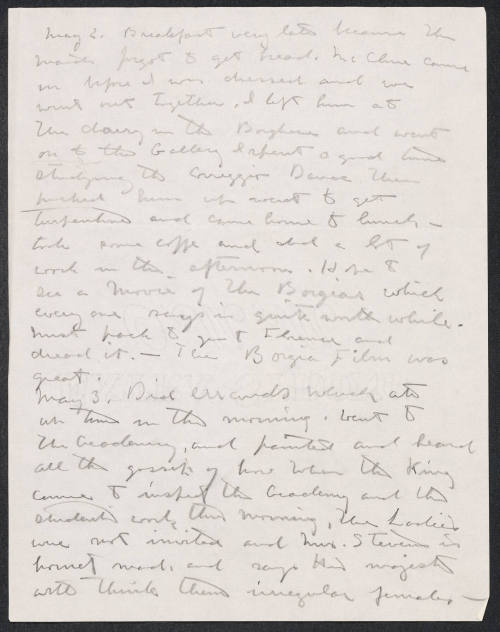 May 2. Breakfast very late because the
maids forgot to get bread. McClure came
in before I was dressed and we
went out together. I left him at
the dairy in the Borghese and went
on to the Gallery I spent a good time
studying the Correggio Danae then
picked him up went to get
turpentine and came home to lunch –
took some coffe and did a lot of
work in the afternoon. Hope to
see a Movie of the Borgias which
everyone says is quite worth while.
Must pack to go to Florence and
dread it. – The Borgia Film was
great.
May 3. Did errands
in the morning. Went to
the Academy, and painted and heard
all the gossip of how when the King
came to inspect the Academy and the
students work, this morning, the Ladies
were not invited and Mrs. Stevens is
hornet mad, and says His majesty
thinks them irregular females –